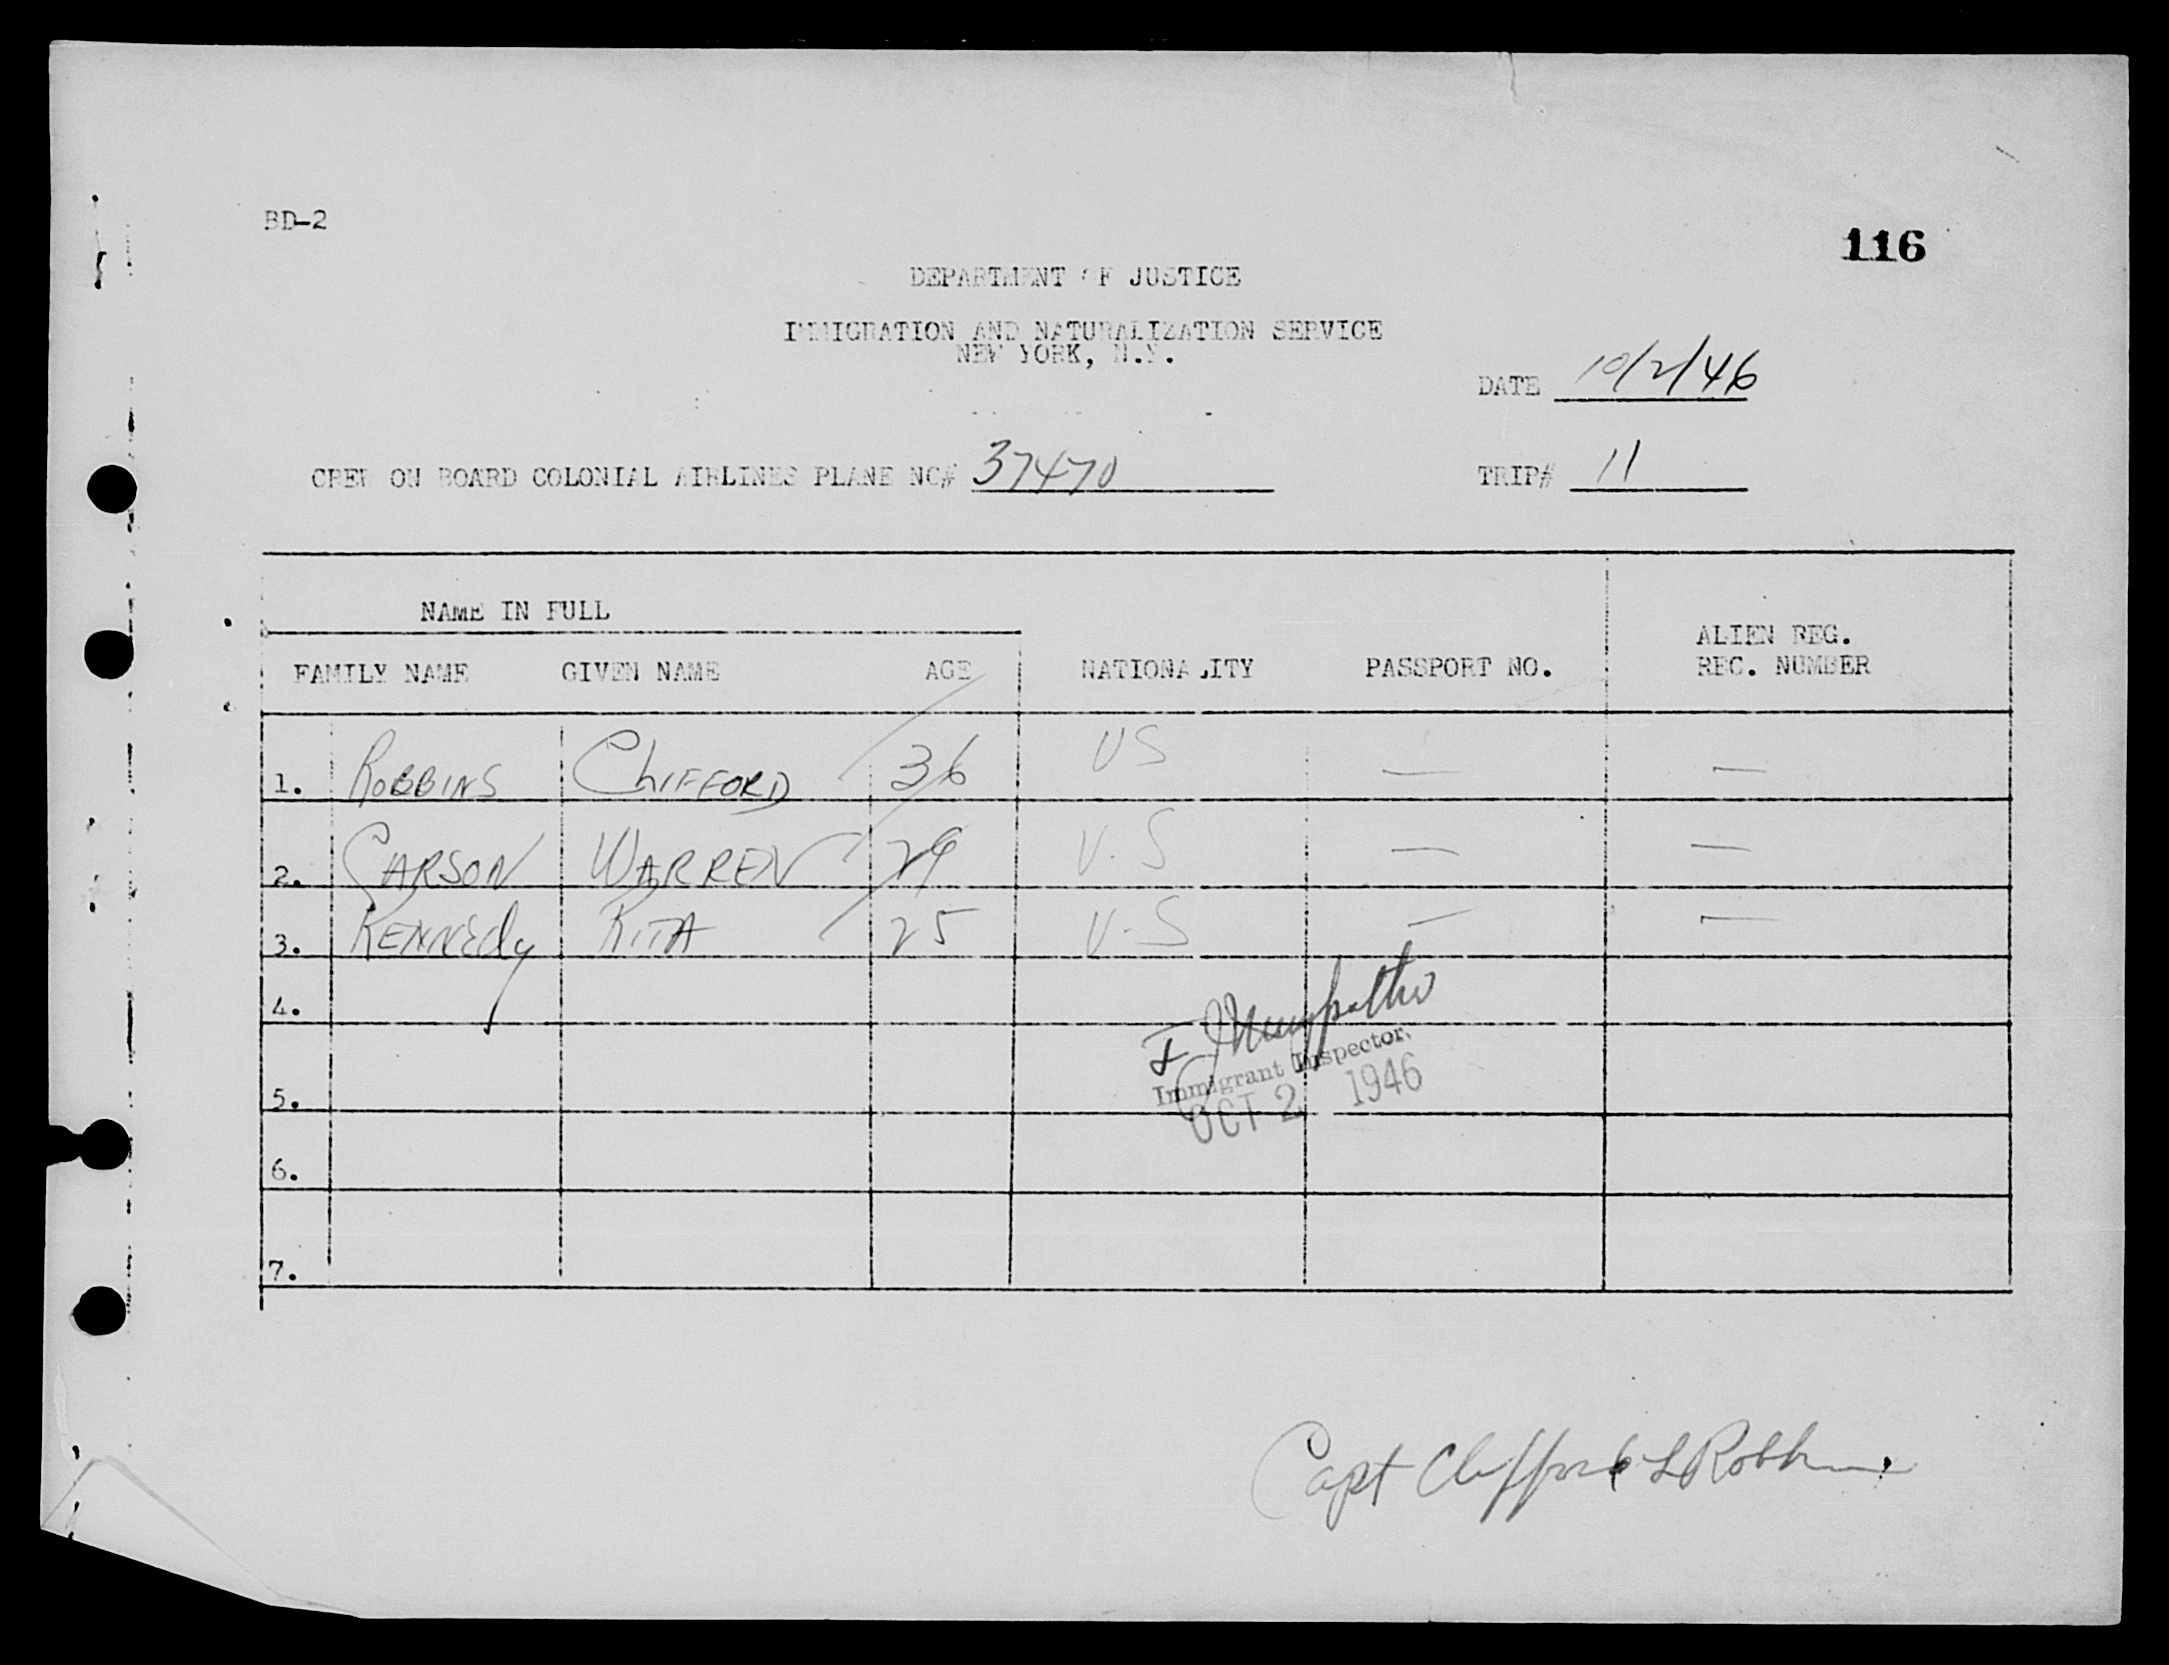 BD-2
116
DEPARTMENT OF JUSTICE
IMMIGRATION AND NATURALIZATION SERVICE
NEW YORK, N.Y.
DATE 10/2/46
CREW ON BOARD COLONIAL AIRLINES PLANE NC# 37470 TRIP# 11
NAME IN FULL
ALIEN REG.
FAMILY NAME GIVEN NAME AGE NATIONALITY PASSPORT NO. REC. NUMBER
1. ROBBINS CLIFFORD 36 US — —
2. CARSON WARREN 29 U.S — —
3. KENNEDy RITA 25 U.S — —
4.
Immigrant Inspector.
5.
OCT 2 1946
6.
7.
Capt Clifford L Robbins